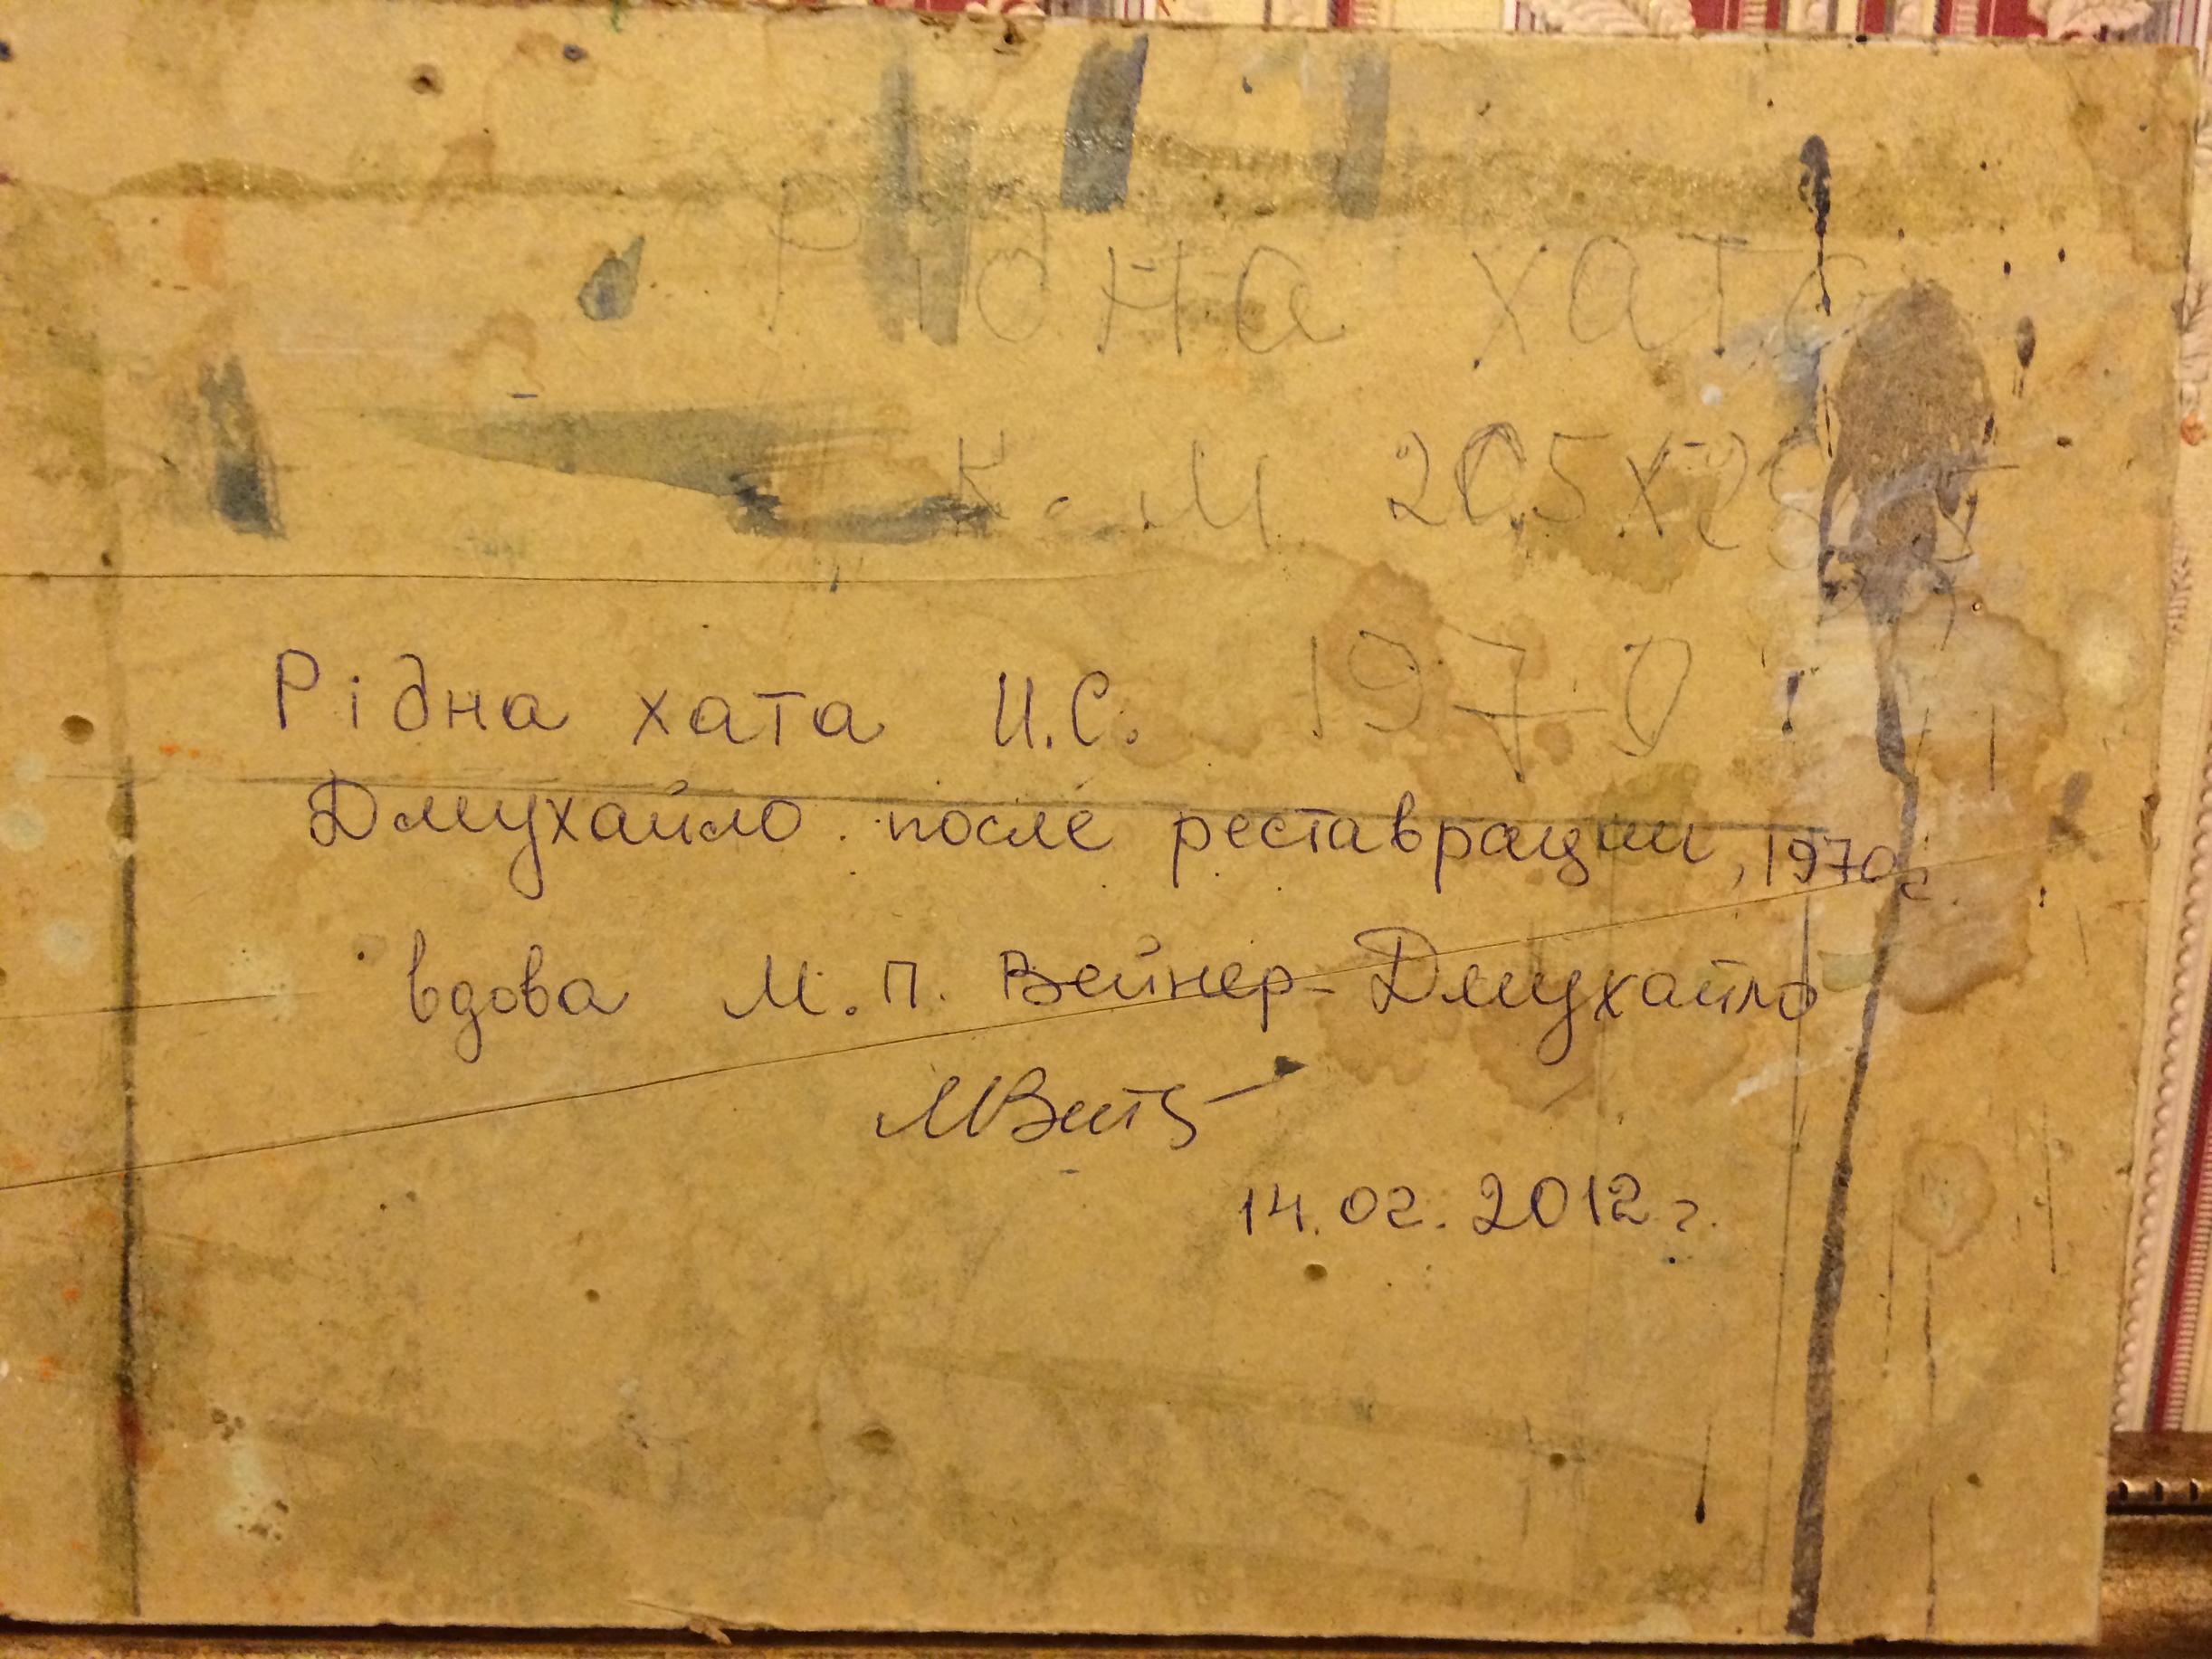 Рідна хата
К. М. 20,5х28,5
1970
Рідна хата И.С.
Дмухайло. после реставрации, 1970 г.
вдова М. П. Вейнер-Дмухайло
14.02.2012 г.